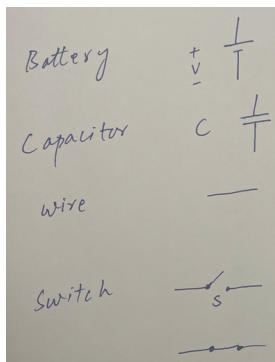 Battery + V -
Capacitor C
wire
Switch S